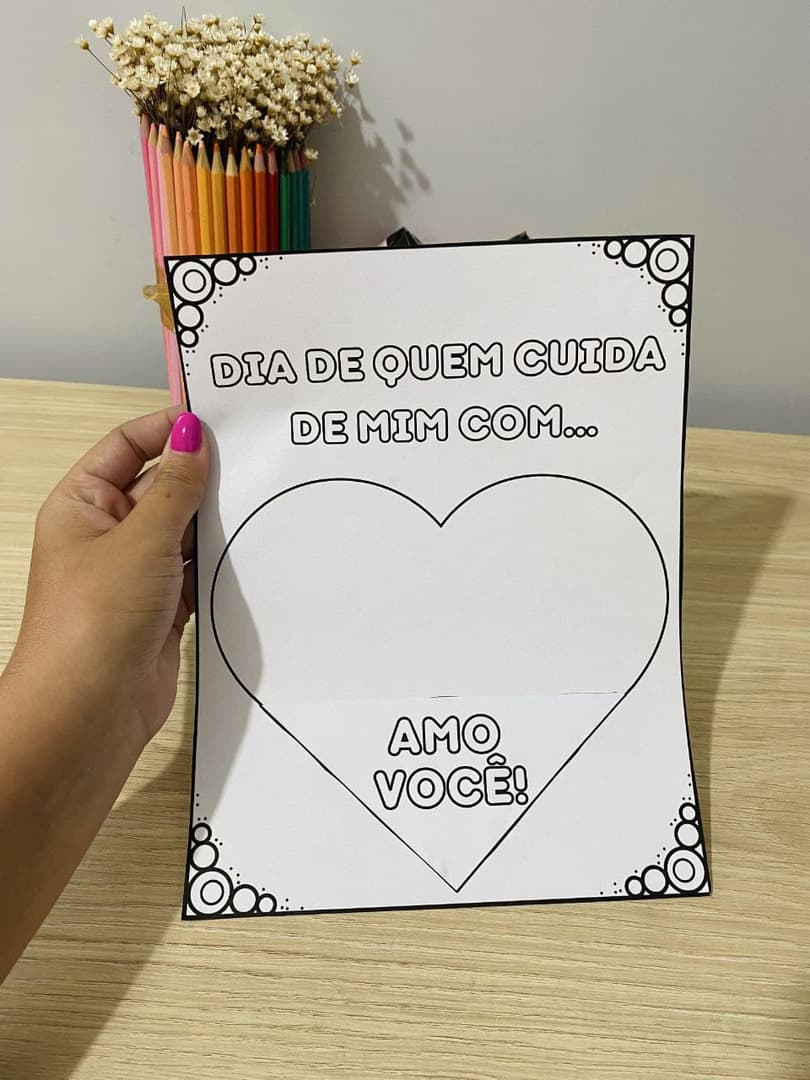 DIA DE QUEM CUIDA
DE MIM COM...
AMO
VOCÊ!